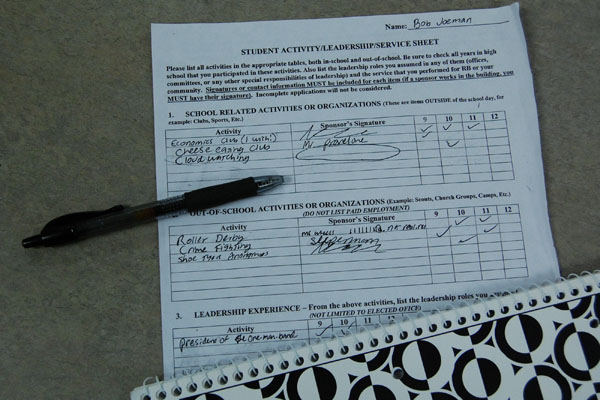 Name: Bob Joeman
STUDENT ACTIVITY/LEADERSHIP/SERVICE SHEET
Please list all activities in the appropriate tables, both in-school and out-of-school. Be sure to check all years in high
school that you participated in these activities. Also list the leadership roles you assumed in any of them (offices,
committees, or any other special responsibilities of leadership) and the service that you performed for RB or your
community. Signatures or contact information MUST be included for each item (if a sponsor works in the building, you
MUST have their signature). Incomplete applications will not be considered.
1. SCHOOL RELATED ACTIVITIES OR ORGANIZATIONS (These are items OUTSIDE of the school day, for
example: Clubs, Sports, Etc.)
Activity Sponsor's Signature 9 10 11 12
Economics Club (I wish!)
Cheese eating Club Mr. Provolone
Cloud watching
OUT-OF-SCHOOL ACTIVITIES OR ORGANIZATIONS (Example: Scouts, Church Groups, Camps, Etc.)
(DO NOT LIST PAID EMPLOYMENT)
Activity Sponsor's Signature 9 10 11 12
Roller Derby
Crime Fighting
Shoe
3. LEADERSHIP EXPERIENCE – From the above activities, list the leadership roles you
(NOT LIMITED TO ELECTED OFICE)
Activity 9 10 11 12
president of the one man band